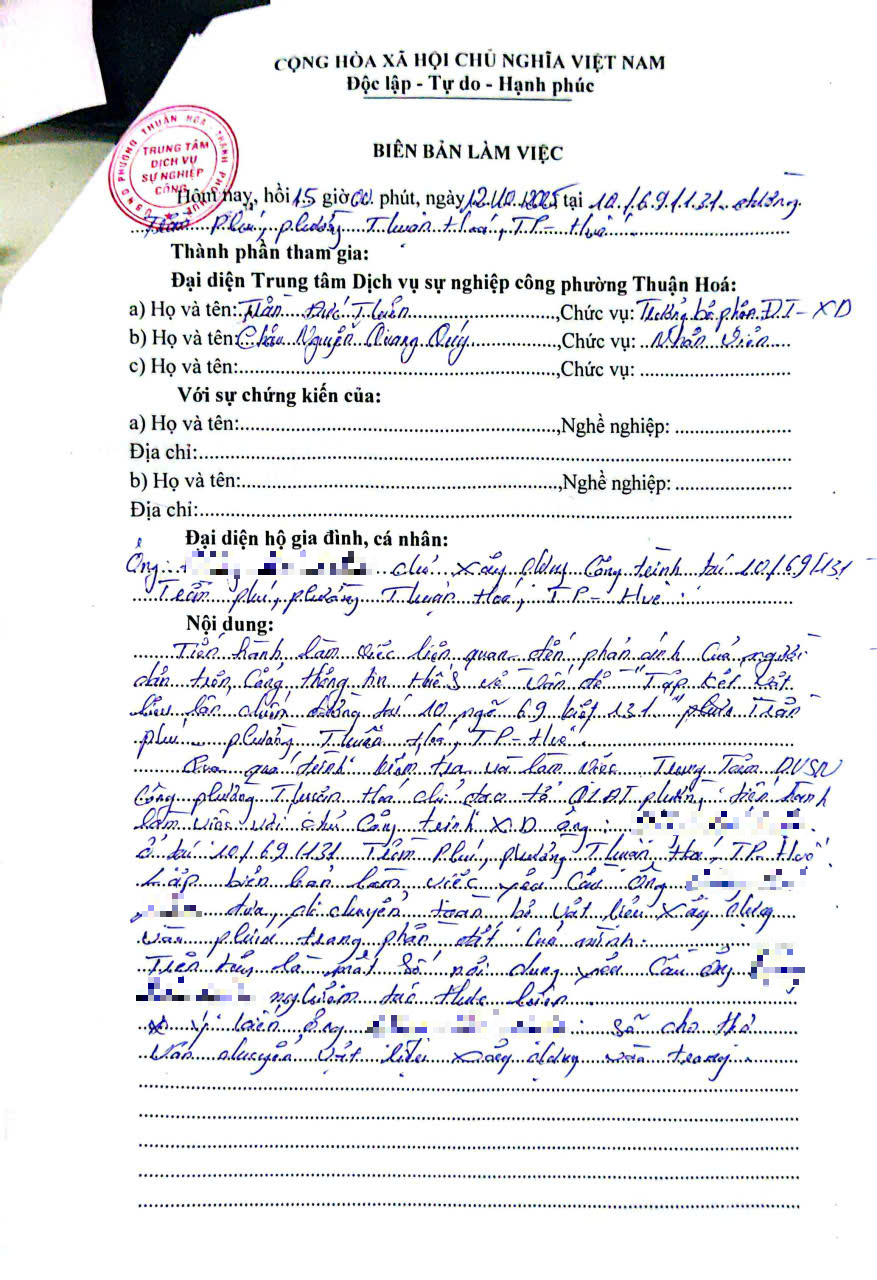 CỘNG HÒA XÃ HỘI CHỦ NGHĨA VIỆT NAM
Độc lập - Tự do - Hạnh phúc
UBND PHƯỜNG THUẬN HÓA THÀNH PHỐ HUẾ
TRUNG TÂM
DỊCH VỤ
SỰ NGHIỆP
CÔNG
BIÊN BẢN LÀM VIỆC
Hôm nay, hồi 15 giờ 00 phút, ngày 12.10.2025 tại 10/69/131 đường
Trần Phú, phường Thuận Hoá, TP-Huế
Thành phần tham gia:
Đại diện Trung tâm Dịch vụ sự nghiệp công phường Thuận Hoá:
a) Họ và tên: Trần Đức, Chức vụ: Trưởng bộ phận ĐT-XD
b) Họ và tên: Châu Nguyễn Quang Quý, Chức vụ: Nhân Viên
c) Họ và tên:, Chức vụ:
Với sự chứng kiến của:
a) Họ và tên:, Nghề nghiệp:
Địa chỉ:
b) Họ và tên:, Nghề nghiệp:
Địa chỉ:
Đại diện hộ gia đình, cá nhân:
Ông: chủ xây dựng Công trình tại 10/69/131
Trần phú, phường Thuận Hoá, TP-Huế
Nội dung:
Tiến hành làm việc liên quan đến phản ánh của người
dân trên Cổng thông tin Huế S về vấn đề "Tập kết vật
liệu lấn chiếm đường tại 10 ngõ 69 kiệt 131" Trần
phú phường Thuận Hoá, TP-Huế.
Qua quá trình kiểm tra và làm việc Trung Tâm DVSN
Công phường Thuận Hoá chỉ đạo tổ QLĐT phường tiến hành
làm việc với chủ Công trình XD ông:
ở tại 10/69/131 Trần Phú, phường Thuận Hoá, TP-Huế.
Lập biên bản làm việc yêu cầu Ông
đưa, di chuyển toàn bộ vật liệu xây dựng
vào phía trong phần đất của mình.
Trên đây là một số nội dung yêu cầu ông
nghiêm túc thực hiện
ý kiến ông : Sẽ cho thợ
vận chuyển vật liệu xây dựng vào trong.